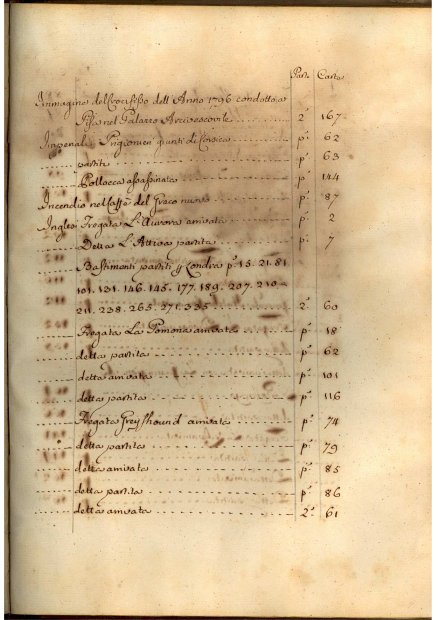 Parte Carta
Immagine del Crocifisso dell'Anno 1796 condotto a
Pisa nel Palazzo Arcivescovile 2.ª 167
Imperiali Prigionieri giunti di Corsica p.ª 62
partiti p.ª 63
Pollacca assassinata p.ª 144
Incendio nel Caffè del Greco nuovo p.ª 87
Inglesi Fregata L'Aurora arrivata p.ª 2
Detta L'Attiva partita p.ª 7
Bastimenti partiti p Londra p.ª 15. 21. 81
101. 131. 146. 145. 177. 189. 207. 210 -
211. 238. 265. 271. 335 2.ª 60
Fregata La Pomona arrivata p.ª 18
detta partita p.ª 62
detta arrivata p.ª 101
detta partita p.ª 116
Fregata Greyhound arrivata p.ª 74
detta partita p.ª 79
detta arrivata p.ª 85
detta partita p.ª 86
detta arrivata 2.ª 61